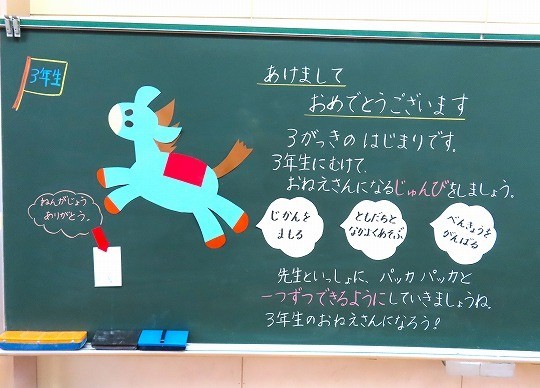 3年生
あけまして
おめでとうございます
3がっきの はじまりです。
3年生にむけて、
おねえさんになるじゅんびをしましょう。
じかんを
まもる
ともだちと
なかよくあそぶ
べんきょうを
がんばる
ねんがじょう
ありがとう。
先生といっしょに、パッカ パッカと
一つずつできるようにしていきましょうね。
3年生のおねえさんになろう!